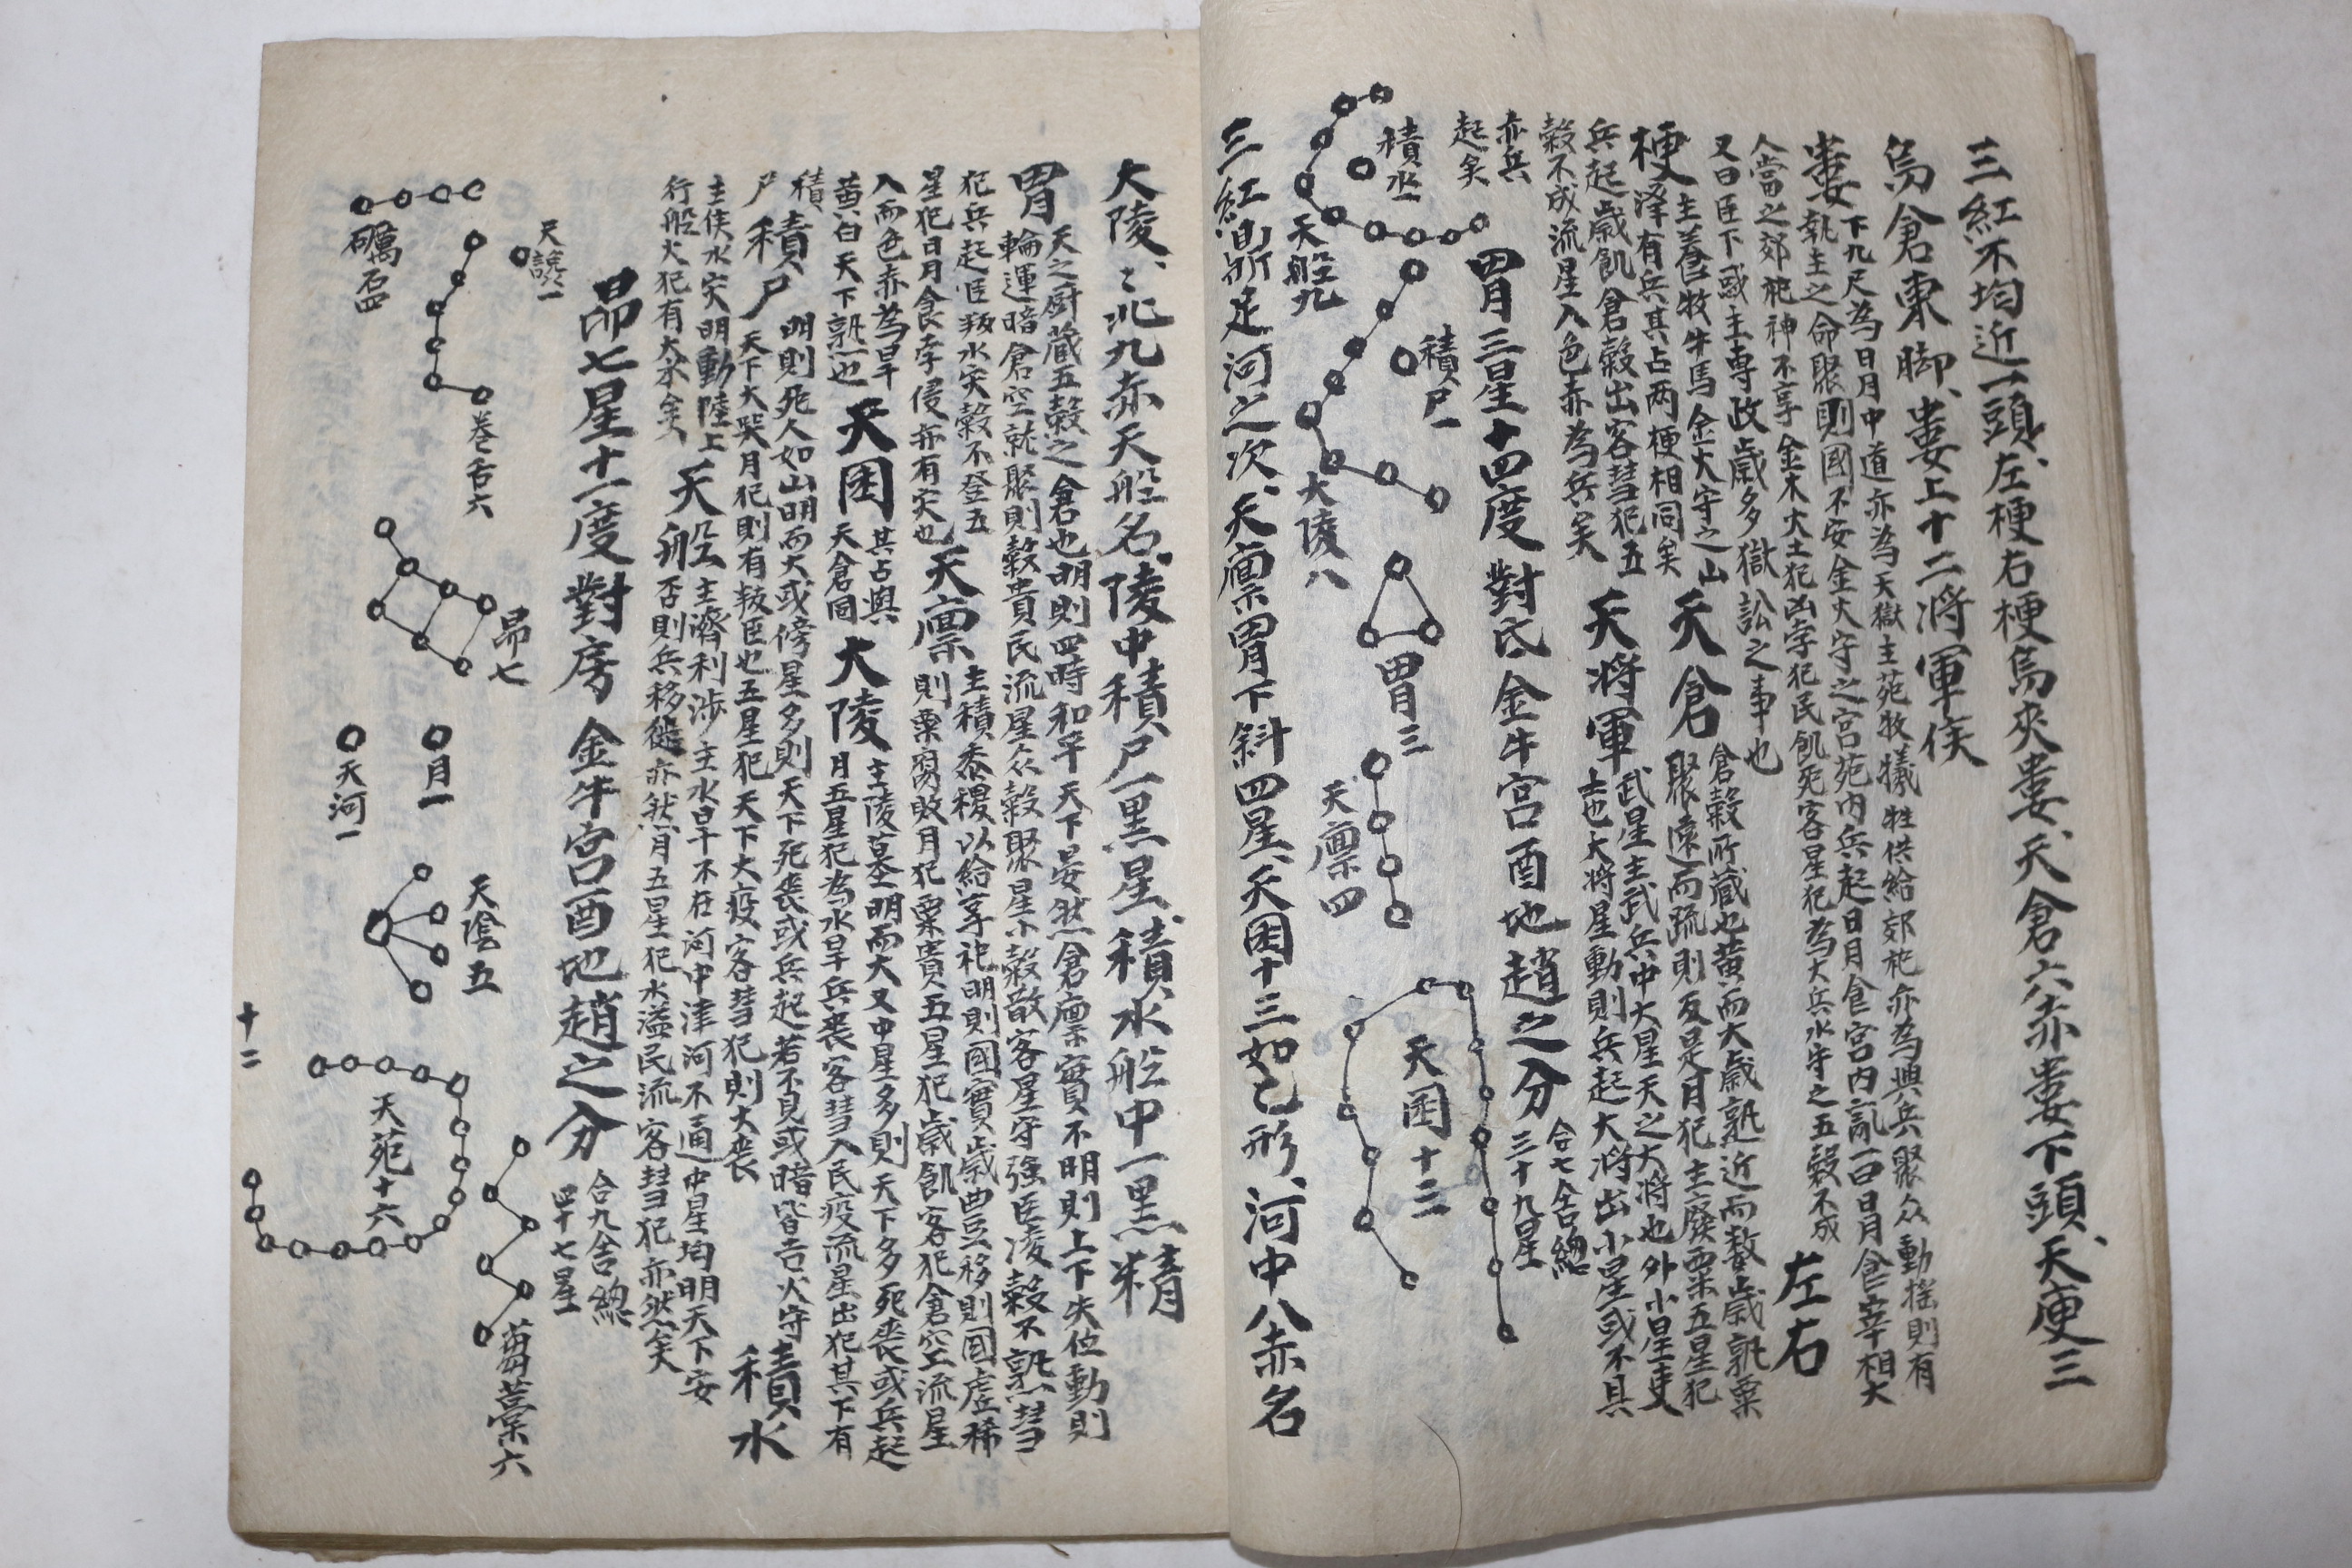 三紅不均近一頭左梗右梗烏夾婁天倉六赤婁下頭天庾三
烏倉東脚婁上十二將軍侯
婁
下九尺爲日月中道亦爲天獄主苑牧犧牲供給郊祀亦爲興兵聚众動搖則有
執主之命聚則國不安金火守之宮苑內兵起日月食宮內亂一曰日月食宰相大
人當之郊祀神不享金木火土犯凶孛犯民飢死客星犯爲大兵水守之五穀不成
又曰臣下或主專政歲多獄訟之事也
左右
梗
主養牧牛馬金火守之山
澤有兵其占两梗相同矣
天倉
倉穀所藏也黃而大歲熟近而数歲熟粟
聚遠而疏則反是月犯主廢西粟五星犯
兵起歲飢倉穀出客彗犯五
穀不成流星入色赤爲兵矣
天將軍
武星主武兵中大星天之大將也外小星吏
士也大將星動則兵起大將出小星或不具
亦兵
起矣
胃三星十四度對氐金牛宮酉地趙之分
合七舍總
三十九星
積水
天船九
積尸一
大陵八
胃三
天廪四
天囷十三
三紅鼎足河之次天廪胃下斜四星天囷十三如乙形河中八赤名
大陵〻北九赤天船名陵中積尸一黑星積水船中一黑精
胃
天之廚藏五穀之倉也明則四時和平天下晏然倉廪實不明則上下失位動則
輪運暗倉空就聚則穀貴民流星众穀聚星小穀散客星守强臣凌穀不熟彗
犯兵起臣叛水灾穀不登五
星犯日月食孛侵亦有灾也
天廪
主積黍稷以給享祀明則國實歲豊移則國虛稀
則粟腐敗月犯粟貴五星犯歲飢客犯倉空流星
入而色赤爲旱
黃白天下熟也
天囷
其占與
天倉同
大陵
主陵墓明而大又中星多則天下多死喪或兵起
月五星犯爲水旱兵喪客彗入民疫流星出犯其下有
積
尸
積尸
明則死人如山明而大或傍星多則天下死喪或兵起若不見或暗皆吉火守
天下大哭月犯則有叛臣也五星犯天下大疫客彗犯則大喪
積水
主侯水灾明動陸上
行船火犯有大水矣
天船
主濟利涉主水旱不在河中津河不通中星均明天下安
否則兵移徙亦然月五星犯水溢民流客彗犯亦然矣
昴七星十一度對房金牛宮酉地趙之分
合九舍總
四十七星
天讒一
礪石四
卷舌六
昴七
月一
天河一
天陰五
天苑十六
蒭藁六
十二